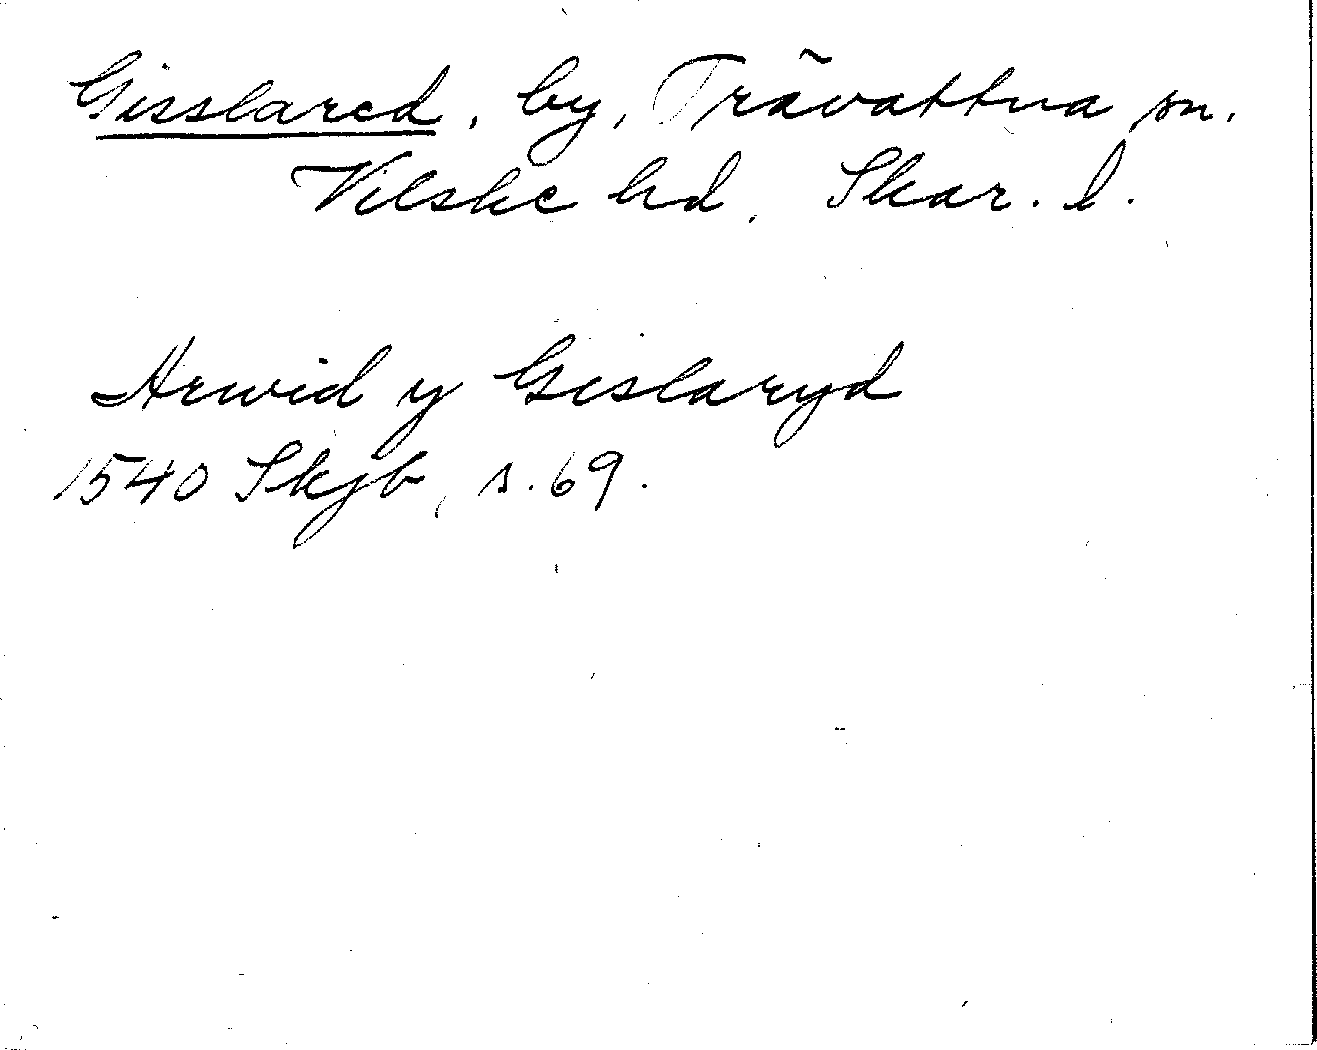 Gisslared, by, Trävattna sn.
Vilske hd. Skar. l.
Arwid y Gislaryd
1540 Skjb, s. 69.